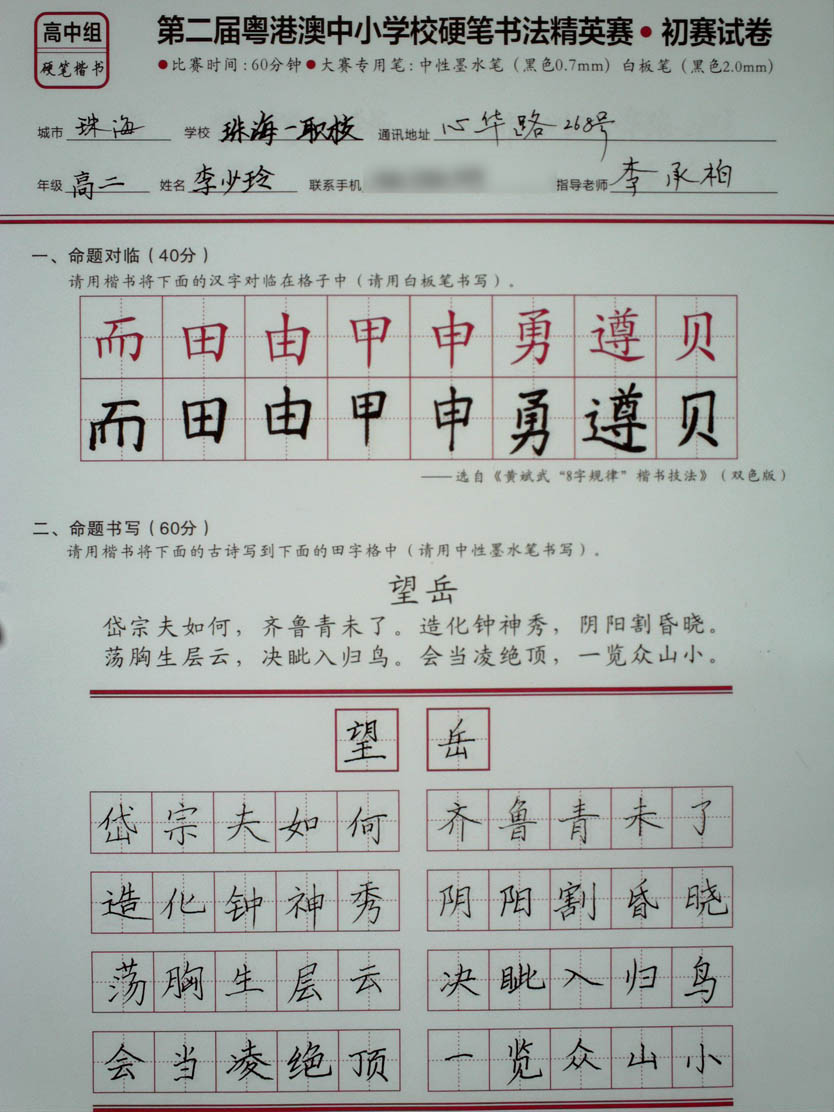 高中组
硬笔楷书
第二届粤港澳中小学校硬笔书法精英赛•初赛试卷
●比赛时间:60分钟●大赛专用笔:中性墨水笔（黑色0.7mm）白板笔（黑色2.0mm）
城市 珠海 学校 珠海一职校 通讯地址 心华路268号
年级 高二 姓名 李少玲 联系手机 指导老师 李承柏
一、命题对临（40分）
请用楷书将下面的汉字对临在格子中（请用白板笔书写）。
而田由甲申勇遵贝
而田由甲申勇遵贝
——选自《黄斌武“8字规律”楷书技法》（双色版）
二、命题书写（60分）
请用楷书将下面的古诗写到下面的田字格中（请用中性墨水笔书写）。
望岳
岱宗夫如何，齐鲁青未了。造化钟神秀，阴阳割昏晓。
荡胸生层云，决眦入归鸟。会当凌绝顶，一览众山小。
望岳
岱宗夫如何 齐鲁青未了
造化钟神秀 阴阳割昏晓
荡胸生层云 决眦入归鸟
会当凌绝顶 一览众山小